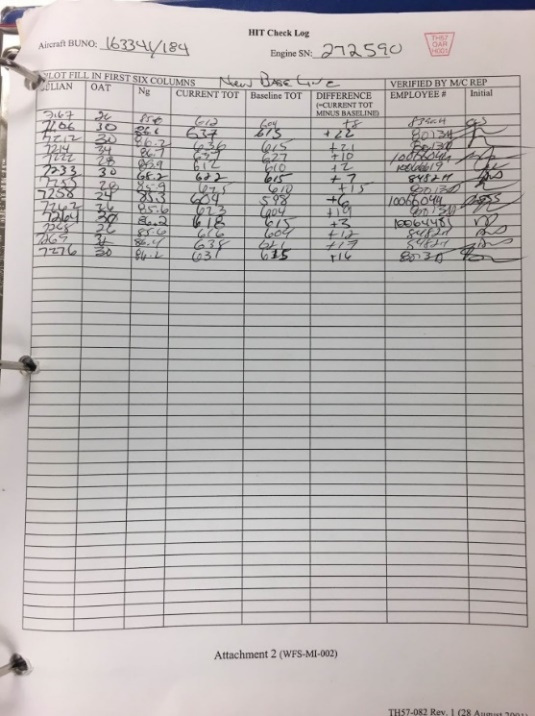 HIT Check Log
Aircraft BUNO: 163341/184
Engine SN: 272590
TH57
QAR
PILOT FILL IN FIRST SIX COLUMNS New Base Line VERIFIED BY M/C REP
JULIAN OAT Ng CURRENT TOT Baseline TOT DIFFERENCE (=CURRENT TOT MINUS BASELINE) EMPLOYEE # Initial
7167 26 612 604 +8
30 637 615 +22 80130
7212 30 86.2 636 615 +21 80130
7214 34 637 627 +10 10066044
7222 28 85.9 612 610 +2
7233 30 622 615 +7 84824
28 85.9 625 610 +15 80130
7258 24 85.3 604 598 +6 10066044
7262 26 85.6 623 604 +19 80130
7264 30 86.2 618 615 +3 10064481
7268 26 85.6 616 604 +12 84824
7269 86.4 638 621 +17 84824
7276 30 86.2 631 615 +16 80130
Attachment 2 (WFS-MI-002)
TH57-082 Rev. 1 (28 August